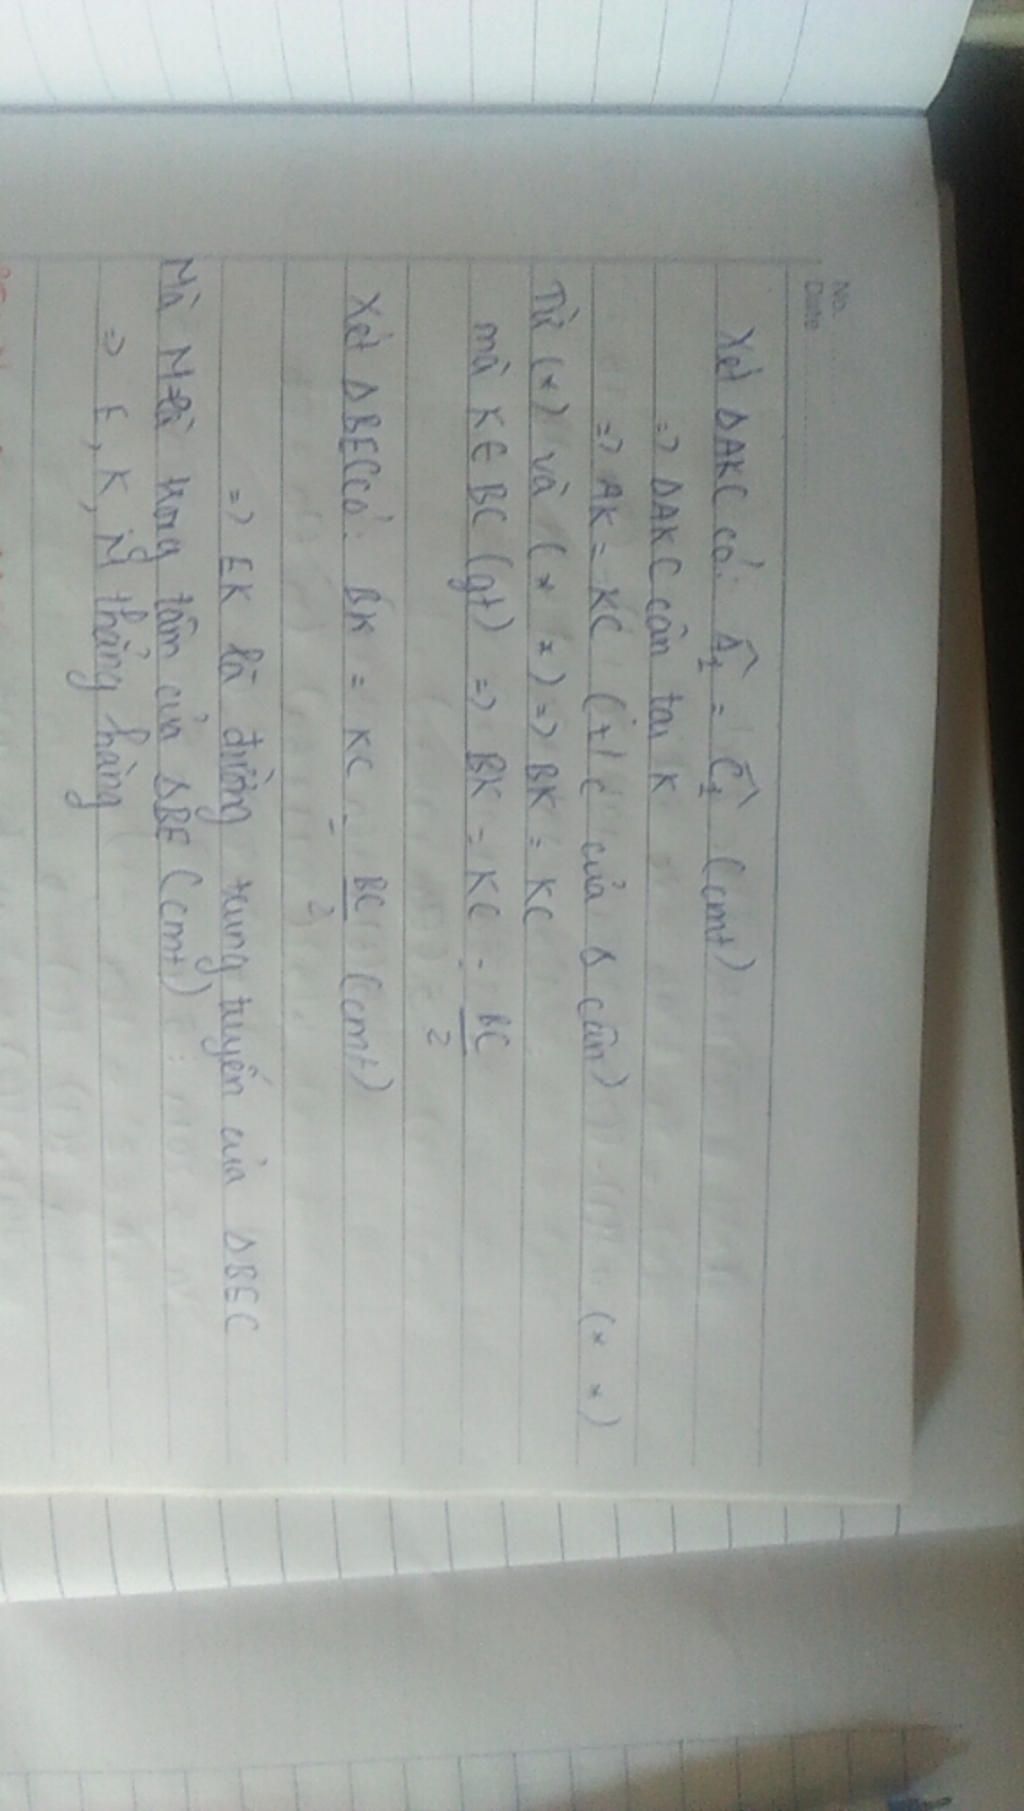 No.
Date
Xét ΔAKC có: Â₁ = Ĉ₁ (cmt)
=> ΔAKC cân tại K
=> AK = KC (t/c của Δ cân) (* *)
Từ (*) và (* *) => BK = KC
mà K ∈ BC (gt) => BK = KC = BC/2
Xét ΔBEC có: BK = KC = BC/2 (cmt)
=> EK là đường trung tuyến của ΔBEC
Mà M là trọng tâm của ΔBE C (cmt)
=> E, K, M thẳng hàng